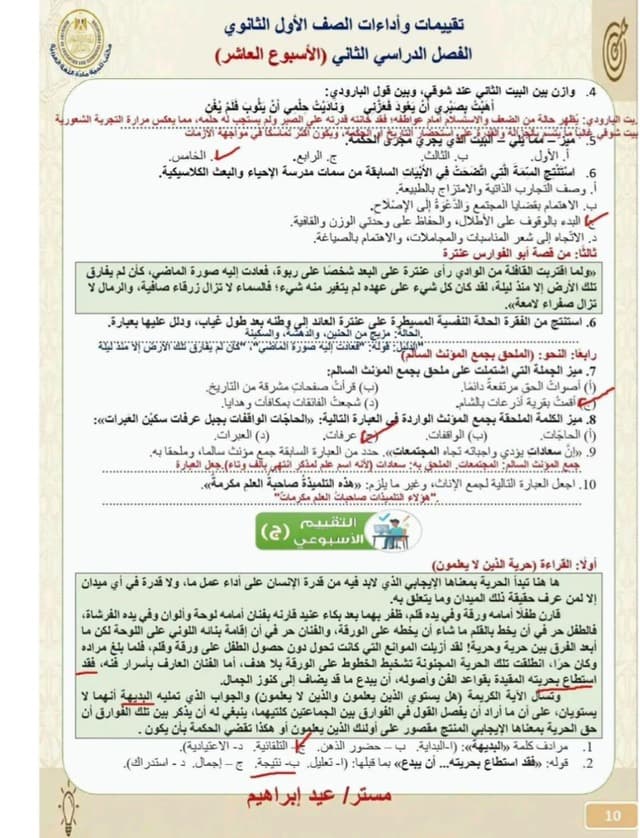 تقييمات وأداءات الصف الأول الثانوي
الفصل الدراسي الثاني (الأسبوع العاشر)
4. وازن بين البيت الثاني عند شوقي، وبين قول البارودي:
أَهَبْتُ بِصَبْرِي أَنْ يَعُودَ فَعَزَّنِي وَنَادَيْتُ حِلْمِي أَنْ يَثُوبَ فَلَمْ يُغْنِ
يت البارودي: يُظهر حالة من الضعف والاستسلام أمام عواطفه؛ فقد خانته قدرته على الصبر ولم يستجب له حلمه، مما يعكس مرارة التجربة الشعورية
بيت شوقي غالبا ما يتسم بالجزالة والقدرة على استحضار التاريخ أو الحكمة، ويكون أكثر تماسكًا في مواجهة الأزمات
5. ميز – مما يلي – البيت الذي يجري مجرى الحكمة.
أ. الأول. ب. الثالث. ج. الرابع. د. الخامس.
6. استنتج السمة التي اتضحت في الأبيات السابقة من سمات مدرسة الإحياء والبعث الكلاسيكية.
أ. وصف التجارب الذاتية والامتزاج بالطبيعة.
ب. الاهتمام بقضايا المجتمع والدعوة إلى الإصلاح.
ج. البدء بالوقوف على الأطلال، والحفاظ على وحدتي الوزن والقافية.
د. الاتجاه إلى شعر المناسبات والمجاملات، والاهتمام بالصياغة.
ثالثًا: من قصة أبو الفوارس عنترة
«ولما اقتربت القافلة من الوادي رأى عنترة على البعد شخصًا على ربوة، فعادت إليه صورة الماضي، كأن لم يفارق
تلك الأرض إلا منذ ليلة، لقد كان كل شيء على عهده لم يتغير منه شيء؛ فالسماء لا تزال زرقاء صافية، والرمال لا
تزال صفراء لامعة».
6. استنتج من الفقرة الحالة النفسية المسيطرة على عنترة العائد إلى وطنه بعد طول غياب، ودلل عليها بعبارة.
الحالة: مزيج من الحنين، والدهشة، والسكينة
الدليل: قوله: "فعادت إليه صورة الماضي"، "كأن لم يفارق تلك الأرض إلا منذ ليلة
رابعًا: النحو: (الملحق بجمع المؤنث السالم)
7. ميز الجملة التي اشتملت على ملحق بجمع المؤنث السالم:
(أ) أصواتُ الحق مرتفعةٌ دائمًا. (ب) قرأتُ صفحاتٍ مشرقة من التاريخ.
(ج) أقمتُ بقرية أذرعات بالشام. (د) شجعتُ الفائقات بمكافآت وهدايا.
8. ميز الكلمة الملحقة بجمع المؤنث الواردة في العبارة التالية: «الحاجّات الواقفات بجبل عرفات سكبْن العَبرات»:
(أ) الحاجّات. (ب) الواقفات. (ج) عرفات. (د) العبرات.
9. «إنَّ سعادات يؤدي واجباته تجاه المجتمعات». حدد من العبارة السابقة جمع مؤنث سالما، وملحقا به.
جمع المؤنث السالم: المجتمعات. الملحق به: سعادات (لأنه اسم علم لمذكر انتهى بألف وتاء).جعل العبارة
10. اجعل العبارة التالية لجمع الإناث، وغير ما يلزم: «هذه التلميذةُ صاحبةُ العلم مكرمةٌ».
"هؤلاء التلميذات صاحباتُ العلم مكرماتٌ"
التقييم
الأسبوعي (ج)
أولًا: القراءة (حرية الذين لا يعلمون)
ها هنا تبدأ الحرية بمعناها الإيجابي الذي لابد فيه من قدرة الإنسان على أداء عمل ما، ولا قدرة في أي ميدان
إلا لمن عرف حقيقة ذلك الميدان وما يتعلق به.
قارن طفلًا أمامه ورقة وفي يده قلم، ظفر بهما بعد بكاء عنيد قارنه بفنان أمامه لوحة وألوان وفي يده الفرشاة،
فالطفل حر في أن يخط بالقلم ما شاء أن يخطه على الورقة، والفنان حر في أن إقامة بنائه اللوني على اللوحة لكن ما
أبعد الفرق بين حرية وحرية! لقد أزيلت الموانع التي كانت تحول دون حصول الطفل على ورقة وقلم، فلما بلغ مراده
وكان حرًا، انطلقت تلك الحرية المجنونة تشخبط الخطوط على الورقة بلا هدف، أما الفنان العارف بأسرار فنه، فقد
استطاع بحريته المقيدة بقواعد الفن وأصوله، أن يبدع ما قد يضاف إلى كنوز الجمال.
وتسأل الآية الكريمة (هل يستوي الذين يعلمون والذين لا يعلمون) والجواب الذي تمليه البديهة أنهما لا
يستويان، على أن ما أراد أن يفصل القول في الفوارق بين الجماعتين كلتيهما، ينبغي له أن يذكر بين تلك الفوارق أن
حق الحرية بمعناها الإيجابي المنتج مقصور على أولئك الذين يعلمون أو هكذا تقضي الحكمة بأن يكون .
1. مرادف كلمة «البديهة»: (ا-البداية. ب – حضور الذهن. ج- التلقائية. د- الاعتيادية).
2. قوله: «فقد استطاع بحريته... أن يبدع» بما قبلها: (ا- تعليل. ب- نتيجة. ج – إجمال. د - استدراك).
مستر/ عيد إبراهيم
10